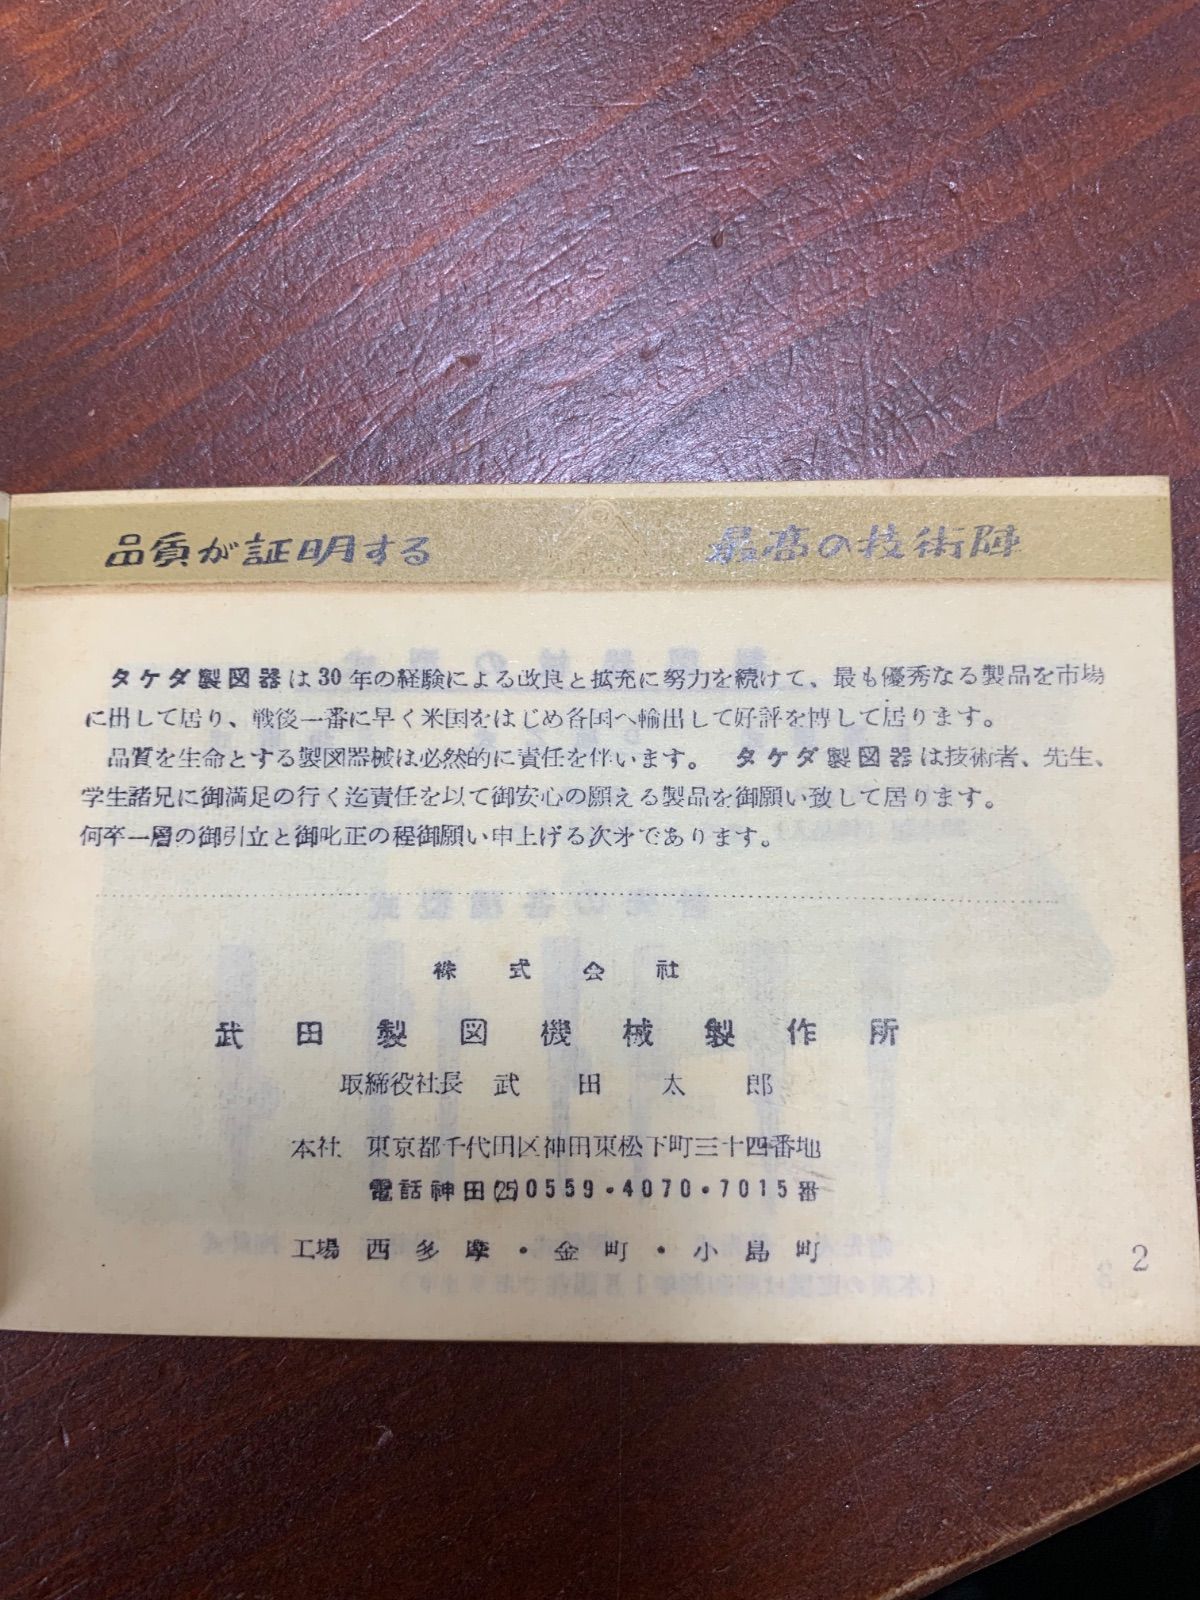 品質が証明する 最高の技術陣
タケダ製図器は30年の経験による改良と拡充に努力を続けて、最も優秀なる製品を市場
に出して居り、戦後一番に早く米国をはじめ各国へ輸出して好評を博して居ります。
品質を生命とする製図器械は必然的に責任を伴います。 タケダ製図器は技術者、先生、
学生諸兄に御満足の行く迄責任を以て御安心の願える製品を御願い致して居ります。
何卒一層の御引立と御叱正の程御願い申上げる次㐧であります。
株式会社
武田製図機械製作所
取締役社長 武田太郎
本社 東京都千代田区神田東松下町三十四番地
電話神田(25)0559・4070・7015番
工場 西多摩・金町・小島町
2